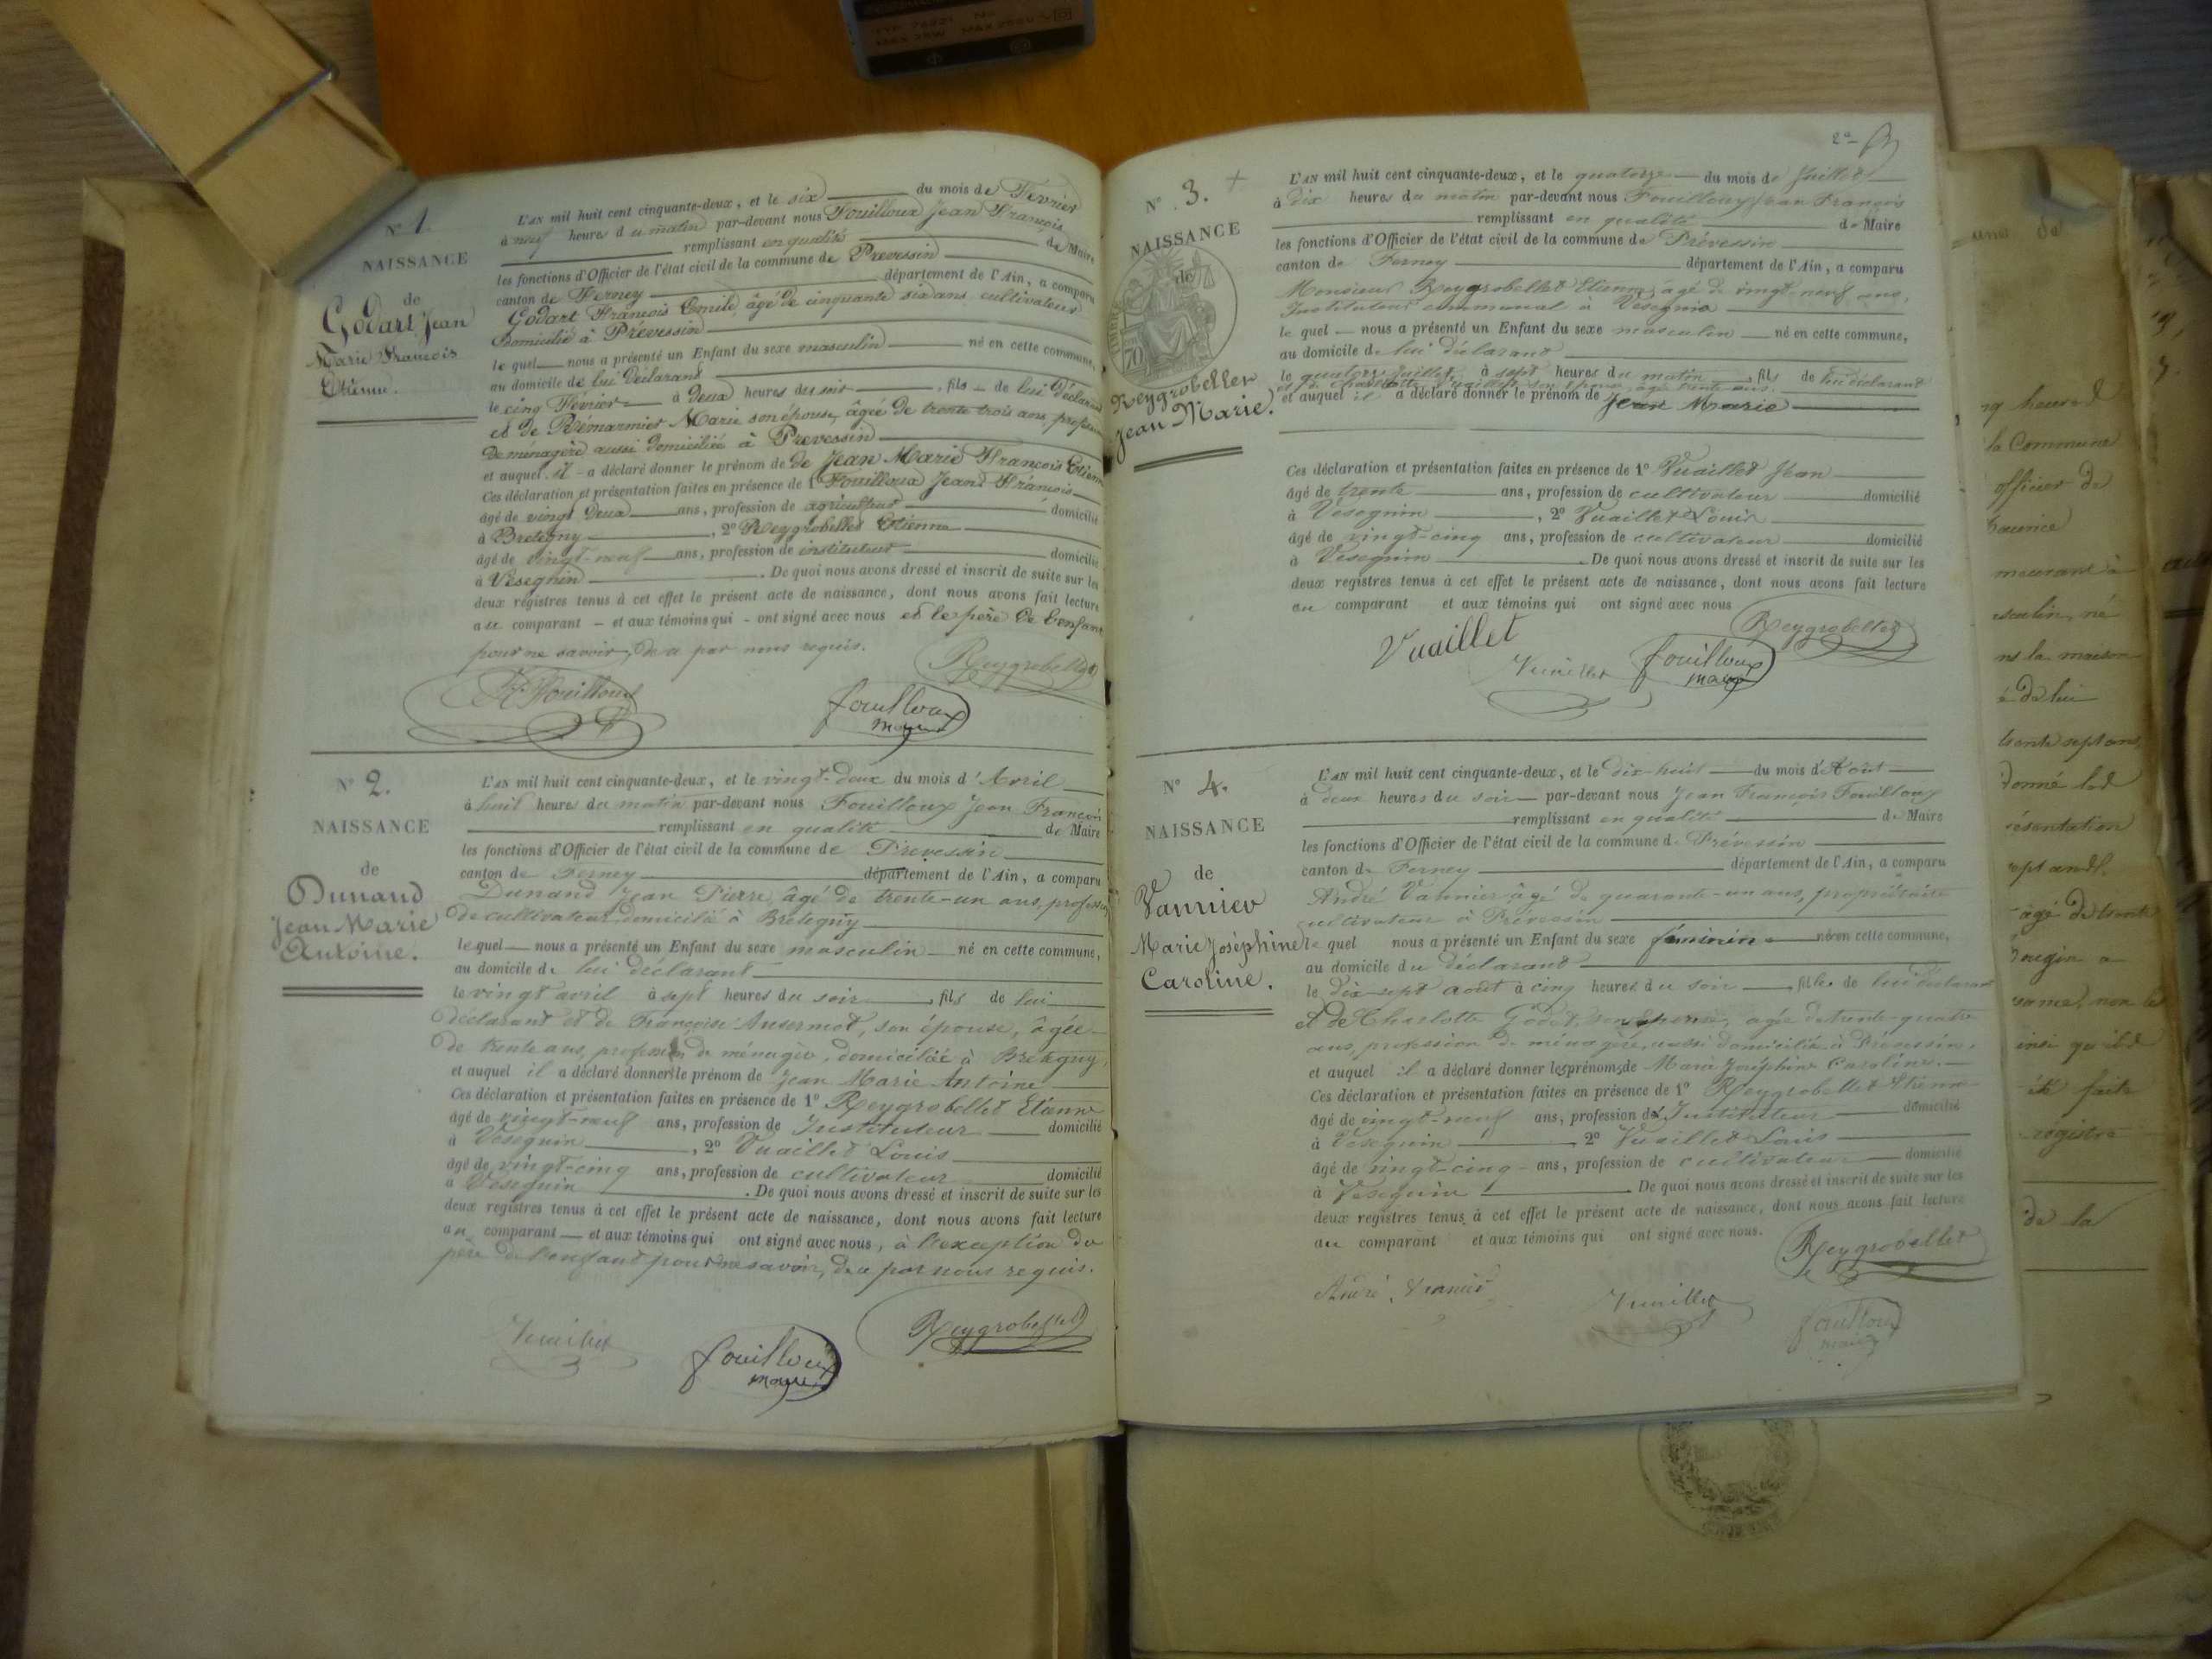 N° 1.
NAISSANCE
de
Godart Jean
Marie François
Etienne.
L'AN mil huit cent cinquante-deux, et le six du mois de Février
à neuf heures du matin par-devant nous Fouilloux Jean François
remplissant en qualité de Maire
les fonctions d'Officier de l'état civil de la commune de Prevessin
canton de Ferney département de l'Ain, a comparu
Godart François Emile âgé de cinquante six ans cultivateur
Domicilié à Prévessin
le quel nous a présenté un Enfant du sexe masculin né en cette commune,
au domicile de lui Déclarant
le cinq Février à deux heures du soir, fils de lui Déclarant
et de Marie son épouse, âgée de trente trois ans, profession
De ménagère aussi domiciliée à Prevessin
et auquel il a déclaré donner le prénom de de Jean Marie François Etienne
Ces déclaration et présentation faites en présence de 1° Fouilloux Jean François
âgé de vingt Deux ans, profession de agriculteur domicilié
à Bretigny, 2° Reygrobellet Etienne
âgé de vingt-neuf ans, profession de instituteur domicilié
à Veseghin. De quoi nous avons dressé et inscrit de suite sur les
deux registres tenus à cet effet le présent acte de naissance, dont nous avons fait lecture
au comparant - et aux témoins qui - ont signé avec nous et le père de l'enfant
pour ne savoir, de ce par nous requis.
Reygrobellet
Fouilloux
fouilloux
maire
N° 2.
NAISSANCE
de
Dunand
Jean Marie
Antoine.
L'AN mil huit cent cinquante-deux, et le vingt-deux du mois d'Avril
à huit heures du matin par-devant nous Fouilloux Jean François
remplissant en qualité de Maire
les fonctions d'Officier de l'état civil de la commune de Prevessin
canton de Ferney département de l'Ain, a comparu
Dunand Jean Pierre, âgé de trente-un ans, profession
de cultivateur domicilié à Bretegny
le quel nous a présenté un Enfant du sexe masculin né en cette commune,
au domicile de lui déclarant
le vingt avril à sept heures du soir, fils de lui
déclarant et de Françoise Ansermot, son épouse, âgée
de trente ans, profession de ménagère, domiciliée à Bretegny,
et auquel il a déclaré donner le prénom de Jean Marie Antoine
Ces déclaration et présentation faites en présence de 1° Reygrobellet Etienne
âgé de vingt-neuf ans, profession de Instituteur domicilié
à Veseguin, 2° Vuaillet Louis
âgé de vingt-cinq ans, profession de cultivateur domicilié
à Veseguin. De quoi nous avons dressé et inscrit de suite sur les
deux registres tenus à cet effet le présent acte de naissance, dont nous avons fait lecture
au comparant et aux témoins qui ont signé avec nous, à l'exception du
père de l'enfant pour ne savoir, de ce par nous requis.
Reygrobellet
Vuaillet
fouilloux
maire
2e
N° 3. +
NAISSANCE
de
TIMBRE
70
Reygrobellet
Jean Marie.
L'AN mil huit cent cinquante-deux, et le quatorze du mois de Juillet
à dix heures du matin par-devant nous Fouilloux Jean François
remplissant en qualité de Maire
les fonctions d'Officier de l'état civil de la commune de Prévessin
canton de Ferney département de l'Ain, a comparu
Monsieur Reygrobellet Etienne, âgé de vingt neuf ans,
Instituteur communal à Vésegnin
le quel nous a présenté un Enfant du sexe masculin né en cette commune,
au domicile de lui déclarant
le quatorze Juillet, à sept heures du matin, fils de lui déclarant
et de Charlotte Vuaillet son épouse, âgée trente ans.
et auquel il a déclaré donner le prénom de Jean Marie
Ces déclaration et présentation faites en présence de 1° Vuaillet Jean
âgé de trente ans, profession de cultivateur domicilié
à Vesegnin, 2° Vuaillet Louis
âgé de vingt-cinq ans, profession de cultivateur domicilié
à Vesegnin. De quoi nous avons dressé et inscrit de suite sur les
deux registres tenus à cet effet le présent acte de naissance, dont nous avons fait lecture
au comparant et aux témoins qui ont signé avec nous
Reygrobellet
Vuaillet
Vuaillet
fouilloux
maire
N° 4.
NAISSANCE
de
Vannier
Marie Joséphine
Caroline.
L'AN mil huit cent cinquante-deux, et le dix-huit du mois d'Août
à deux heures du soir par-devant nous Jean François Fouilloux
remplissant en qualité de Maire
les fonctions d'Officier de l'état civil de la commune de Prévessin
canton de Ferney département de l'Ain, a comparu
André Vannier, âgé de quarante-un ans, propriétaire
cultivateur à Prévessin
le quel nous a présenté un Enfant du sexe féminin né en cette commune,
au domicile du déclarant
le dix-sept août à cinq heures du soir, fille de lui déclarant
et de Charlotte Godet, son épouse, âgée de trente-quatre
ans, profession de ménagère, aussi domiciliée à Prévessin,
et auquel il a déclaré donner les prénoms de Marie Joséphine Caroline.
Ces déclaration et présentation faites en présence de 1° Reygrobellet Etienne
âgé de vingt-neuf ans, profession de Instituteur domicilié
à Veseguin, 2° Vuaillet Louis
âgé de vingt-cinq ans, profession de cultivateur domicilié
à Veseguin. De quoi nous avons dressé et inscrit de suite sur les
deux registres tenus à cet effet le présent acte de naissance, dont nous avons fait lecture
au comparant et aux témoins qui ont signé avec nous.
Reygrobellet
André Vannier
Vuaillet
fouilloux
maire
heures d
la Commune
officier de
Maurice
demeurant à
masculin, né
la maison
de lui
trente sept ans
donné les
présentation
âgé de trente
non le
ainsi qu'il
été faite
registre
de la